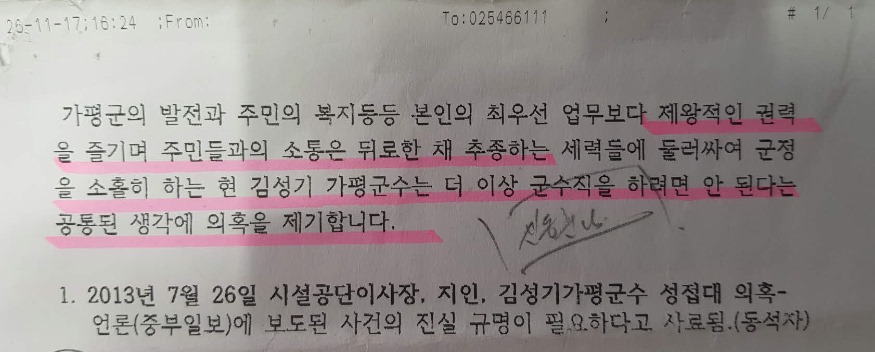 26-11-17;16:24 ;From: To:025466111 ; # 1/ 1
가평군의 발전과 주민의 복지등등 본인의 최우선 업무보다 제왕적인 권력
을 즐기며 주민들과의 소통은 뒤로한 채 추종하는 세력들에 둘러싸여 군정
을 소홀히 하는 현 김성기 가평군수는 더 이상 군수직을 하려면 안 된다는
공통된 생각에 의혹을 제기합니다.
1. 2013년 7월 26일 시설공단이사장, 지인, 김성기가평군수 성접대 의혹-
언론(중부일보)에 보도된 사건의 진실 규명이 필요하다고 사료됨.(동석자)